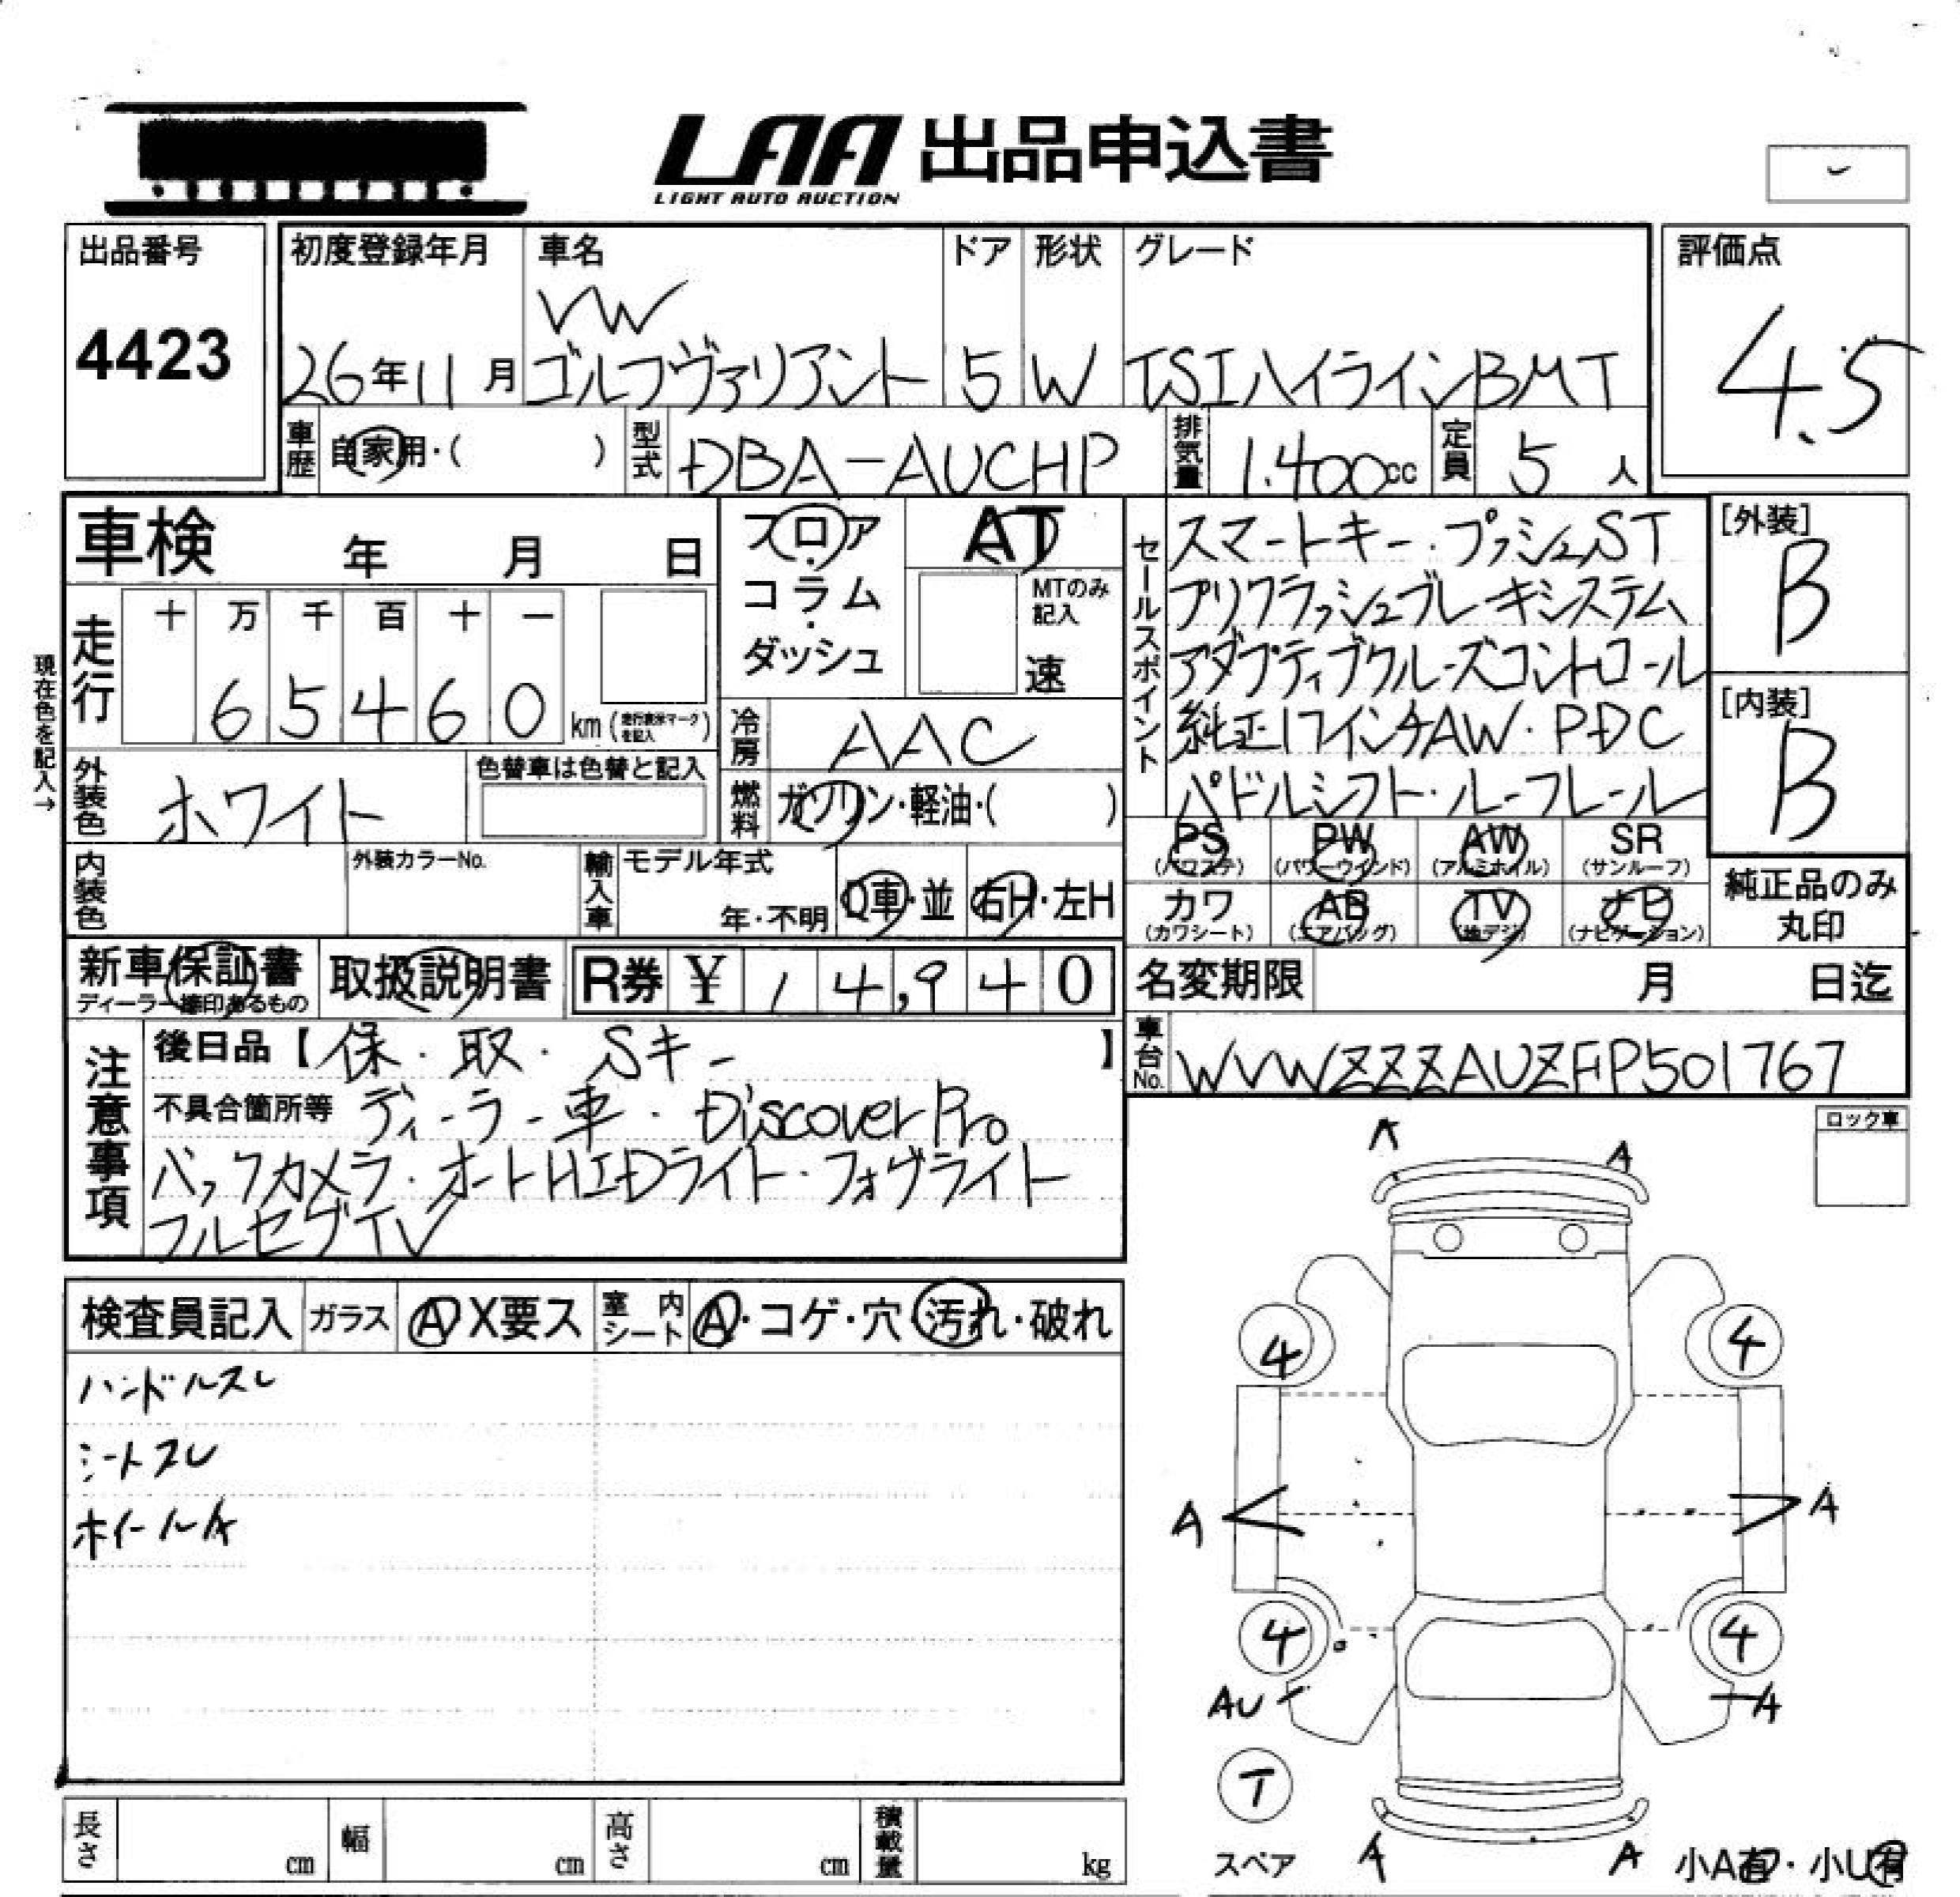 LAA 出品申込書
LIGHT AUTO AUCTION
出品番号
4423
初度登録年月
26年11月
車名
VW
ゴルフヴァリアント
ドア
5
形状
W
グレード
TSIハイラインBMT
評価点
4.5
車歴 自家用・( )
型式 DBA-AUCHP
排気量 1.400cc
定員 5人
車検 年 月 日
フロア・コラム・ダッシュ
AT
MTのみ記入
速
セールスポイント
スマートキー・プッシュST
プリクラッシュブレーキシステム
アダプティブクルーズコントロール
純正17インチAW・PDC
パドルシフト・ルーフレール
[外装]
B
[内装]
B
現在色を記入→
走行
十 万 千 百 十 一
6 5 4 6 0 km (走行表示マークを記入)
冷房 AAC
外装色 ホワイト
色替車は色替と記入
燃料 ガソリン・軽油・( )
PS (パワステ)
PW (パワーウインド)
AW (アルミホイル)
SR (サンルーフ)
カワ (カワシート)
AB (エアバッグ)
TV (地デジ)
ナビ (ナビゲーション)
純正品のみ
丸印
内装色
外装カラーNo.
輸入車
モデル年式
年・不明
D車・並
右H・左H
新車保証書
ディーラー捺印あるもの
取扱説明書
R券 ¥ 14,940
名変期限 月 日迄
車台No. WVWZZZAUZFP501767
注意事項
後日品【保・取・Sキー】
不具合箇所等 ディーラー車・DiscoverPro
バックカメラ・オートHIDライト・フォグライト
フルセグTV
ロック車
検査員記入
ガラス A X要ス
室内シート A・コゲ・穴・汚れ・破れ
ハンドルスレ
シートスレ
ホイールA
A A
4 4
A A
4 4
AU A
T
スペア
A A
小A有・小U有
長さ cm
幅 cm
高さ cm
積載量 kg